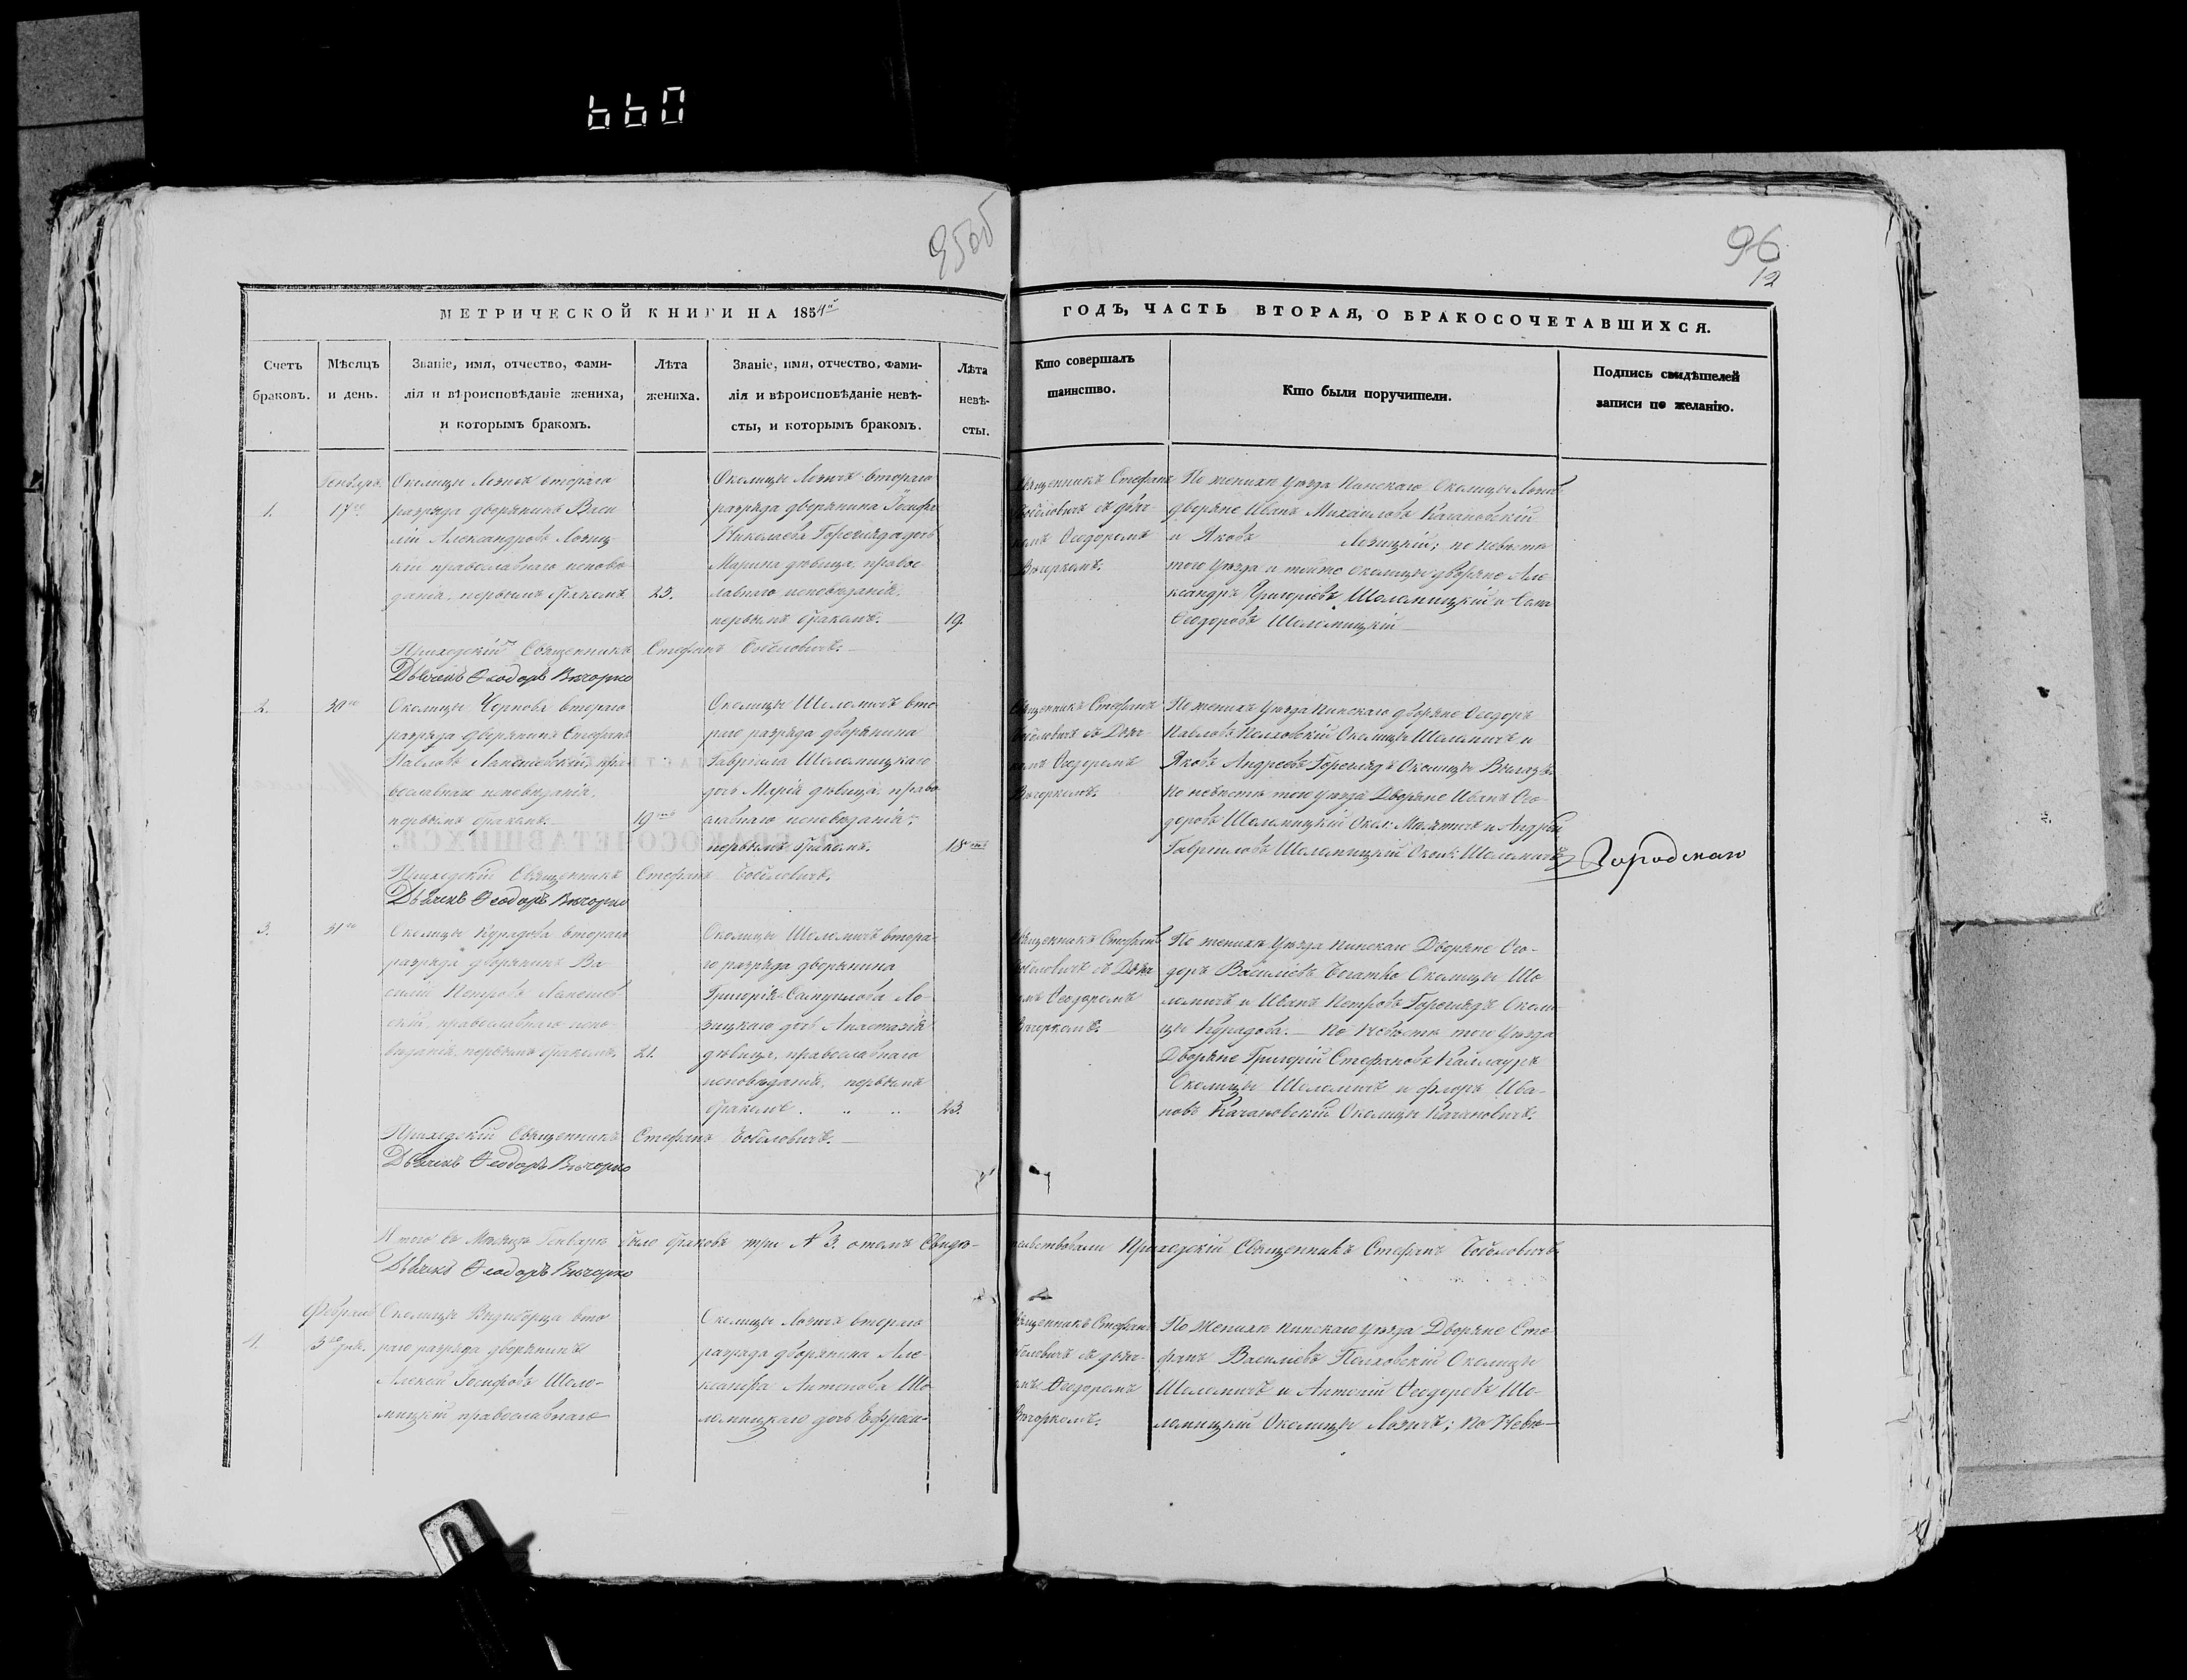 660
95об
96
12
МЕТРИЧЕСКОЙ КНИГИ НА 1854й
ГОДЪ, ЧАСТЬ ВТОРАЯ, О БРАКОСОЧЕТАВШИХСЯ.
Счетъ
браковъ.
Мѣсяцъ
и день.
Званіе, имя, отчество, фами-
лія и вѣроисповѣданіе жениха,
и которымъ бракомъ.
Лѣта
жениха.
Званіе, имя, отчество, фами-
лія и вѣроисповѣданіе невѣ-
сты, и которымъ бракомъ.
Лѣта
невѣ-
сты.
Кто совершалъ
таинство.
Кто были поручители.
Подпись свидѣтелей
записи по желанію.
1.
Генварь
17го
Околицы Лозичъ втораго
разряда дворянинъ Васи
лій Александровъ Лозиц-
кій православнаго исповѣ
данія, первымъ бракомъ
25.
Околицы Лозичъ втораго
разряда дворянина Іосифа
Николаева Гореглядадочь
Марина дѣвица, правос
лавнаго исповѣданія,
первымъ бракомъ.
19.
Священникъ Стефанъ
Бобѣловичъ съ дьяч-
комъ Ѳеодоромъ
Вѣчоркомъ.
По женихѣ Уѣзда Пинскаго Околицы Лозичъ
дворяне Иванъ Михаиловъ Качановскій
и Яковъ Лозицкій; по невѣстѣ
того Уѣзда и тойже околицы дворяне Але
ксандръ Григоріевъ Шоломицкій и
Ѳеодоровъ Шоломицкій
Приходскій Священникъ Стефанъ Бобѣловичъ.
Дьячекъ Ѳеодоръ Вѣчорко
2.
30го
Околицы Чернова втораго
разряда дворянинъ Стефанъ
Павловъ Лапешевскій, пра-
вославнаго исповѣданія,
первымъ бракомъ.
19
Околицы Шоломичъ вто
раго разряда дворянина
Гавріила Шоломицкаго
дочь Марія дѣвица, право
славнаго исповѣданія,
первымъ бракомъ.
18
Священникъ Стефанъ
Бобѣловичъ съ Дьяч-
комъ Ѳеодоромъ
Вѣчоркомъ.
По женихѣ Уѣзда Пинскаго дворяне Ѳеодоръ
Павловъ Полховскій Околицы Шоломичъ и
Яковъ Андреевъ Гореглядъ Околицы
По невѣстѣ того уѣзда Дворяне Иванъ Ѳео-
доровъ Шоломицкій Окол: и Андрей
Гавриловъ Шоломицкій Окол: Шоломичъ
Городскаго
Приходскій Священникъ Стефанъ Бобѣловичъ.
Дьячекъ Ѳеодоръ Вѣчорко
3.
31го
Околицы Курадова втораго
разряда дворянинъ Ва-
силій Петровъ Лапешев
скій, православнаго испо-
вѣданія, первымъ бракомъ.
21.
Околицы Шоломичъ втора-
го разряда дворянина
Григорія Самуилова Ло-
зицкаго дочь Анастазія
дѣвица, православнаго
исповѣданія, первымъ
бракомъ.
23.
Священникъ Стефанъ
Бобѣловичъ съ Дьяч
комъ Ѳеодоромъ
Вѣчоркомъ.
По женихѣ Уѣзда Пинскаго Дворяне Ѳео-
доръ Василіевъ Богатко Околицы Шо
ломичъ и Иванъ Петровъ Гореглядъ Околи
цы Курадова. — По Невѣстѣ того Уѣзда
Дворяне Григорій Стефановъ Кайлауръ
Околицы Шоломичъ и Флоръ Ива-
новъ Качановскій Околицы Качановичъ.
Приходскій Священникъ Стефанъ Бобѣловичъ.
Дьячекъ Ѳеодоръ Вѣчорко
Итого въ Мѣсяцѣ Генварѣ было браковъ три № 3. отомъ Свидѣ-
тельствовали Приходскій Священникъ Стефанъ Бобѣловичъ.
Дьячекъ Ѳеодоръ Вѣчорко
4.
Февраль
3го дня.
Околицы Видиборца вто
раго разряда дворянинъ
Алексѣй Іосифовъ Шоло-
мицкій православнаго
Околицы Лозичъ втораго
разряда дворянина Але-
ксандра Антонова Шо
ломицкаго дочь Ефроси-
Священникъ Стефанъ
Бобѣловичъ съ дьяч-
комъ Ѳеодоромъ
Вѣчоркомъ.
По Женихѣ Пинскаго Уѣзда Дворяне Сте
фанъ Василіевъ Полховскій Околицы
Шоломичъ и Антоній Ѳеодоровъ Шо-
ломицкій Околицы Лозичъ; по Невѣ-